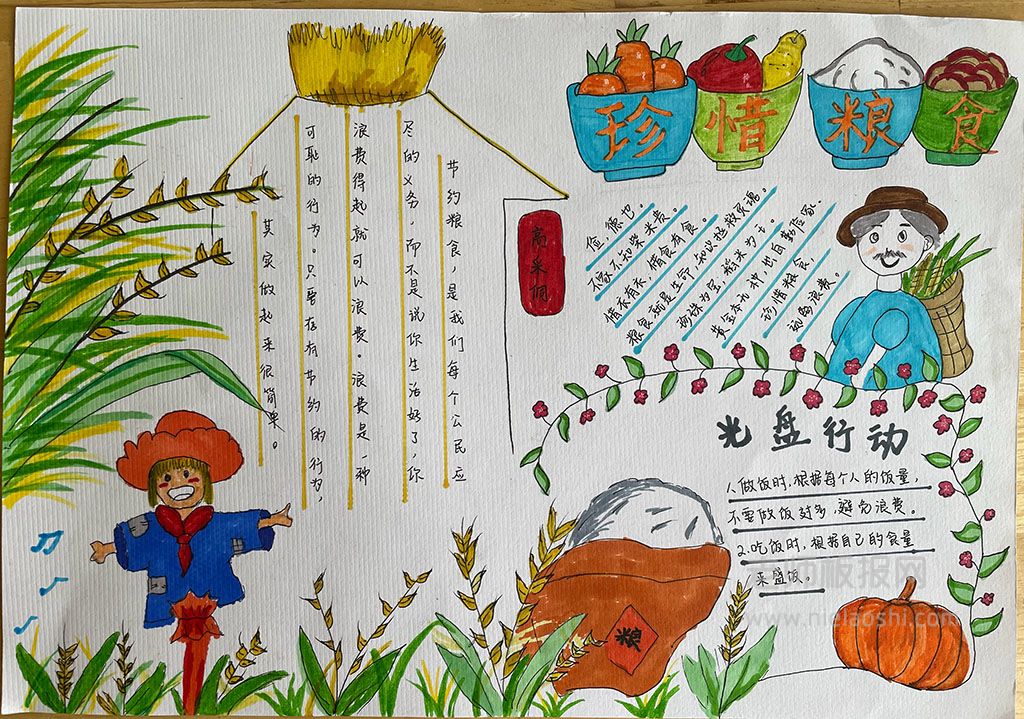 珍惜粮食
节约粮食，是我们每个公民应
尽的义务，而不是说你生活好了，你
浪费得起就可以浪费。浪费是一种
可耻的行为。只要存有节约的行为，
其实做起来很简单。
俭，德也。
不家不知柴米贵。
惜衣有衣，惜食有食。
粮食就是生命，知识拯救灵魂。
珍珠为宝，稻米为王。
黄金本无种，出自勤俭家、
珍惜粮食，
浪费。
光盘行动
1、做饭时，根据每个人的饭量，
不要做饭过多，避免浪费。
2.吃饭时，根据自己的食量
来盛饭。
粮
板报网
www.nielaoshi.com